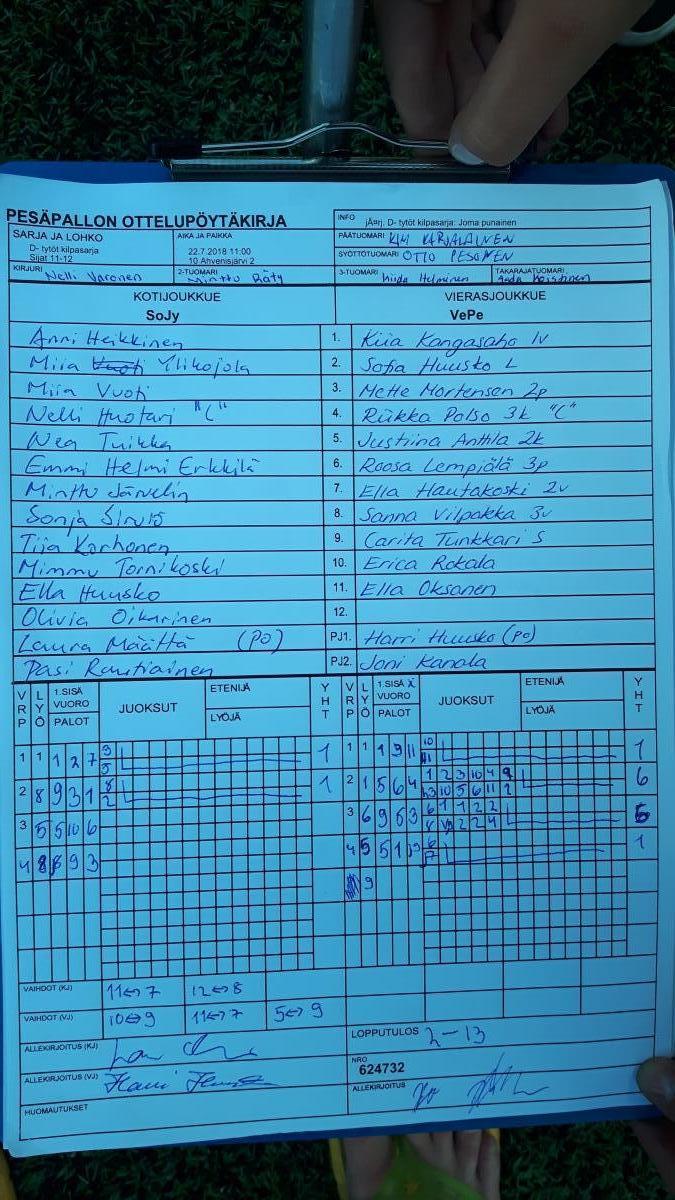 PESÄPALLON OTTELUPÖYTÄKIRJA
INFO jÃ¤rj. D- tytöt kilpasarja: Joma punainen
SARJA JA LOHKO
D- tytöt kilpasarja
Sijat 11-12
AIKA JA PAIKKA
22.7.2018 11:00
10 Ahvenisjärvi 2
PÄÄTUOMARI KIM KARJALAINEN
SYÖTTÖTUOMARI OTTO PESONEN
KIRJURI Nelli Varonen
2-TUOMARI Minttu Räty
3-TUOMARI Miida Helminen
TAKARAJATUOMARI
KOTIJOUKKUE
SoJy
VIERASJOUKKUE
VePe
Anni Heikkinen 1. Kiia Kangasaho 1v
Miia Vuoti Ylikojola 2. Sofia Huusko L
Miia Vuoti 3. Mette Mortensen 2p
Nelli Huotari "C" 4. Riikka Polso 3k "C"
Nea Tuikka 5. Justiina Anttila 2k
Emmi Helmi Erkkilä 6. Roosa Lempiälä 3p
Minttu Järvelin 7. Ella Hautakoski 2v
Sonja Sirviö 8. Sanna Vilpakka 3v
Tiia Korhonen 9. Carita Tunkkari S
Mimmu Tornikoski 10. Erica Rokala
Ella Huusko 11. Ella Oksanen
Olivia Oikarinen 12.
Laura Määttä (PO) PJ1. Harri Huusko (PO)
Pasi Rautiainen PJ2. Joni Kanala
VRP LYÖ 1.SISÄ VUORO PALOT JUOKSUT ETENIJÄ LYÖJÄ YHT VRP LYÖ 1.SISÄ X VUORO PALOT JUOKSUT ETENIJÄ LYÖJÄ YHT
1 1 1 2 7 3 5 1 1 1 1 9 11 10 11 1
2 8 9 3 1 8 2 1 2 1 5 6 4 1 2 3 10 4 9 6
3 10 5 6 11 2
3 5 5 10 6 3 6 9 5 3 6 1 1 2 2 5
8 2 2 4
4 8 8 9 3 4 5 5 1 6 1
9
VAIHDOT (KJ) 11↔7 12↔8
VAIHDOT (VJ) 10↔9 11↔7 5↔9
ALLEKIRJOITUS (KJ)
LOPPUTULOS 2-13
ALLEKIRJOITUS (VJ) Harri Huusko
NRO
624732
HUOMAUTUKSET
ALLEKIRJOITUS